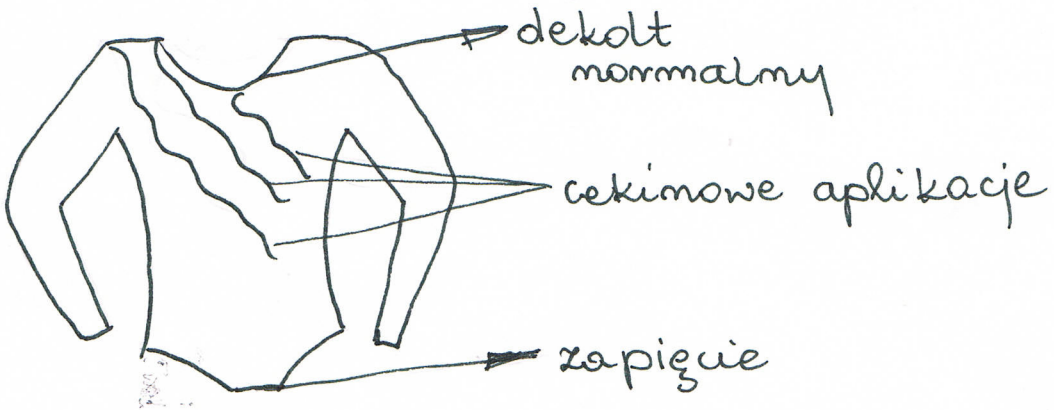 dekolt
normalny
cekinowe aplikacje
zapięcie